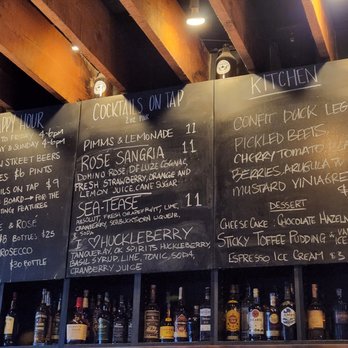 PPY HOUR
4-6pm
& SUNDAY 4-6pm
N STREET BEERS
$6 PINTS
AILS ON TAP $9
BOARD FOR THE
FEATURES
& ROSÉ
BOTTLES $25
ROSECCO
$30 BOTTLE
COCKTAILS ON TAP
PIMMS & LEMONADE 11
ROSÉ SANGRIA 11
DOMINO ROSÉ, DELUZE COGNAC,
FRESH STRAWBERRY, ORANGE AND
LEMON JUICE, CANE SUGAR
SEA-TEASE 11
ABSOLUT, FRESH GRAPEFRUIT, LIME,
CRANBERRY, SEABUCKTHORN LIQUEUR,
SODA
I ♡ HUCKLEBERRY
TANQUERAY, OK SPIRITS HUCKLEBERRY,
BASIL SYRUP, LIME, TONIC, SODA,
CRANBERRY JUICE
KITCHEN
CONFIT DUCK LEG
PICKLED BEETS,
CHERRY TOMATO,
BERRIES, ARUGULA
MUSTARD
DESSERT
CHEESECAKE, CHOCOLATE HAZELN
STICKY TOFFEE PUDDING &
ESPRESSO ICE CREAM